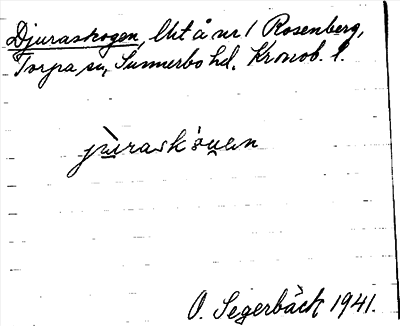 Djuraskogen, lht å nr 1 Rosenberg,
Torpa sn, Sunnerbo hd. Kronob. l.
jùraskɷuen
O. Segerbäck 1941.